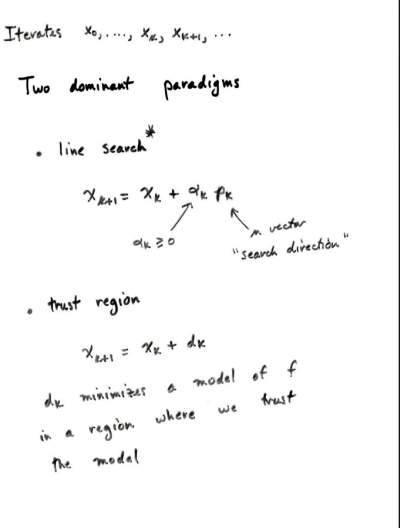 Iterates x₀, ...., xₖ, xₖ₊₁, ...
Two dominant paradigms
• line search*
xₖ₊₁ = xₖ + αₖ pₖ
αₖ ≥ 0
n vector
"search direction"
• trust region
xₖ₊₁ = xₖ + dₖ
dₖ minimizes a model of f
in a region where we trust
the model